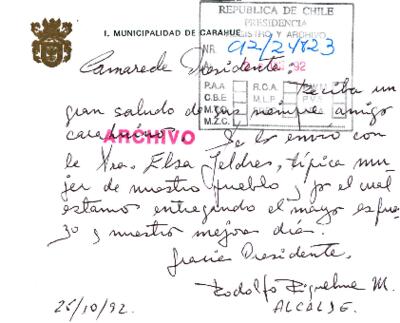 I. MUNICIPALIDAD DE CARAHUE
REPUBLICA DE CHILE
PRESIDENCIA
REGISTRO Y ARCHIVO
NR. 92/24823
A 92
P.A.A. R.C.A.
C.B.E. M.L.P. P.V.S.
M.T.O.
M.Z.C.
ARCHIVO
Camarada Presidente:
Reciba un
gran saludo de sus siempre amigo
carahuino. Se lo envío con
la Sra. Elsa Jeldres, típica mu-
jer de nuestro pueblo y por el cual
estamos entregando el mayor esfuer-
zo y nuestro mejores días.
Gracias Presidente.
Rodolfo Riquelme M.
ALCALDE.
26/10/92.